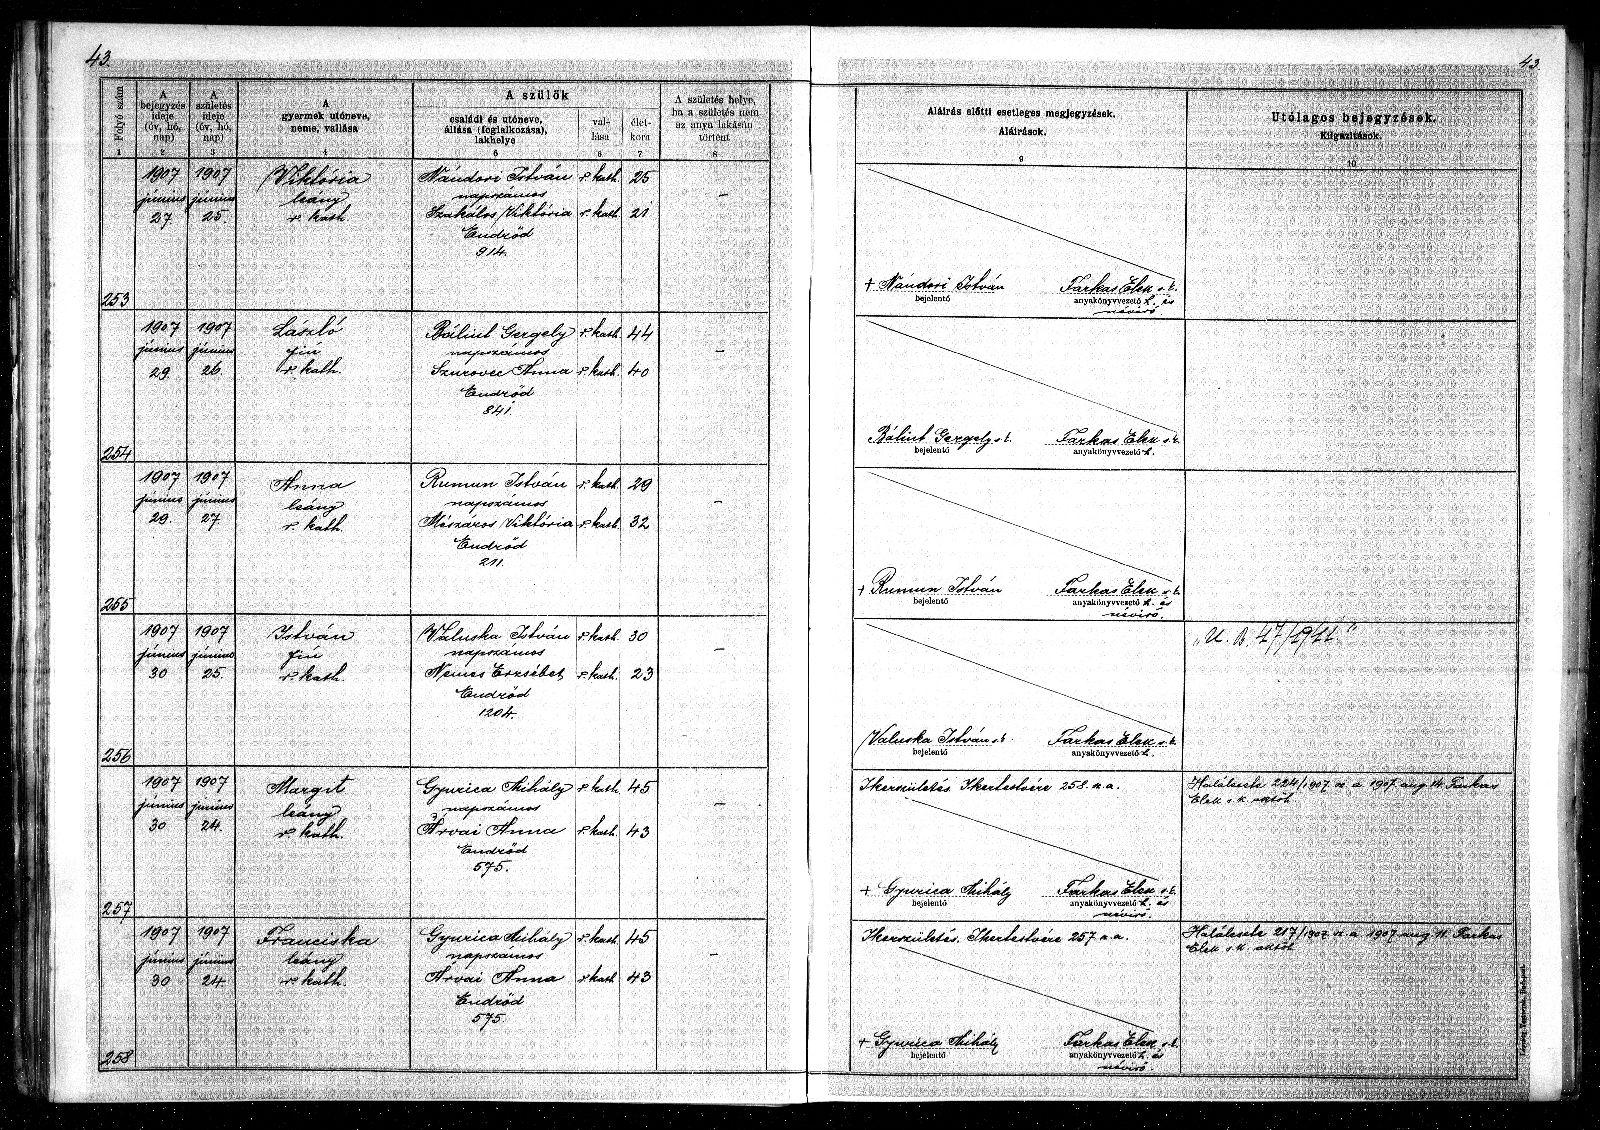 43.
43.
Folyó szám
A bejegyzés ideje (óv, hó, nap)
A születés ideje (óv, hó, nap)
A gyermek utóneve, neme, vallása
A szülők
családi és utóneve, állása (foglalkozása), lakhelye
val-lása
élet-kora
A születés helye, ha a születés nem az anya lakásán történt
Aláirás előtti esetleges megjegyzések. Aláirások.
Utólagos bejegyzések. Kiigazitások.
1 2 3 4 5 6 7 8 9 10
1907 1907 Viktória Nándori István r. kath. 25
június június leány napszámos –
27. 25. r. kath. Szakálos Viktória r. kath. 21
Endrőd
914.
+ Nándori István Farkas Elek s.k.
bejelentő anyakönyvvezető h. és
névíró
253
1907 1907 László Bálint Gergely r. kath. 44
június június fiú napszámos –
29. 26. r. kath. Szurovec Anna r. kath. 40
Endrőd
841.
Bálint Gergely s.k. Farkas Elek s.k.
bejelentő anyakönyvvezető h.
254
1907 1907 Anna Rumun István r. kath. 29
június június leány napszámos –
29. 27. r. kath. Mészáros Viktória r. kath. 32
Endrőd
211.
+ Rumun István Farkas Elek s.k.
bejelentő anyakönyvvezető h. és
névíró.
255
1907 1907 István Valuska István r. kath. 30 "U. A. 47/1911."
június június fiú napszámos –
30 25. r. kath. Nemes Erzsébet r. kath. 23
Endrőd
1204.
Valuska István s.k. Farkas Elek s.k.
bejelentő anyakönyvvezető h.
256
1907 1907 Margit Gyurica Mihály r. kath. 45 Ikerszületés. Ikertestvére 258. a.a. Halálesete 224/1907. a. 1907. aug 14. Farkas
június június leány napszámos – Elek s.k. aktöt
30 24. r. kath. Árvai Anna r. kath. 43
Endrőd
575.
+ Gyurica Mihály Farkas Elek s.k.
bejelentő anyakönyvvezető h. és
névíró.
257
1907 1907 Franciska Gyurica Mihály r. kath. 45 Ikerszületés. Ikertestvére 257 a.a. Halálesete 217/1907. a. 1907. aug 11. Farkas
június június leány napszámos – Elek s.k. aktöt
30 24. r. kath. Árvai Anna r. kath. 43
Endrőd
575.
+ Gyurica Mihály Farkas Elek s.k.
bejelentő anyakönyvvezető h. és
névíró.
258